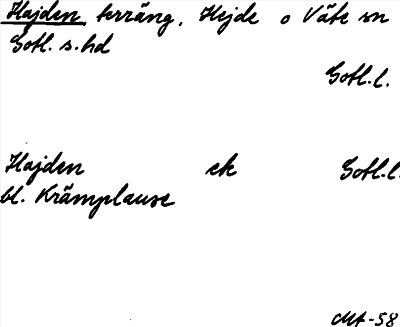 Hajden terräng, Hejde o Väte sn
Gotl. s. hd
Gotl. l.
Hajden ek Gotl. l.
bl. Krämplause
MA-58